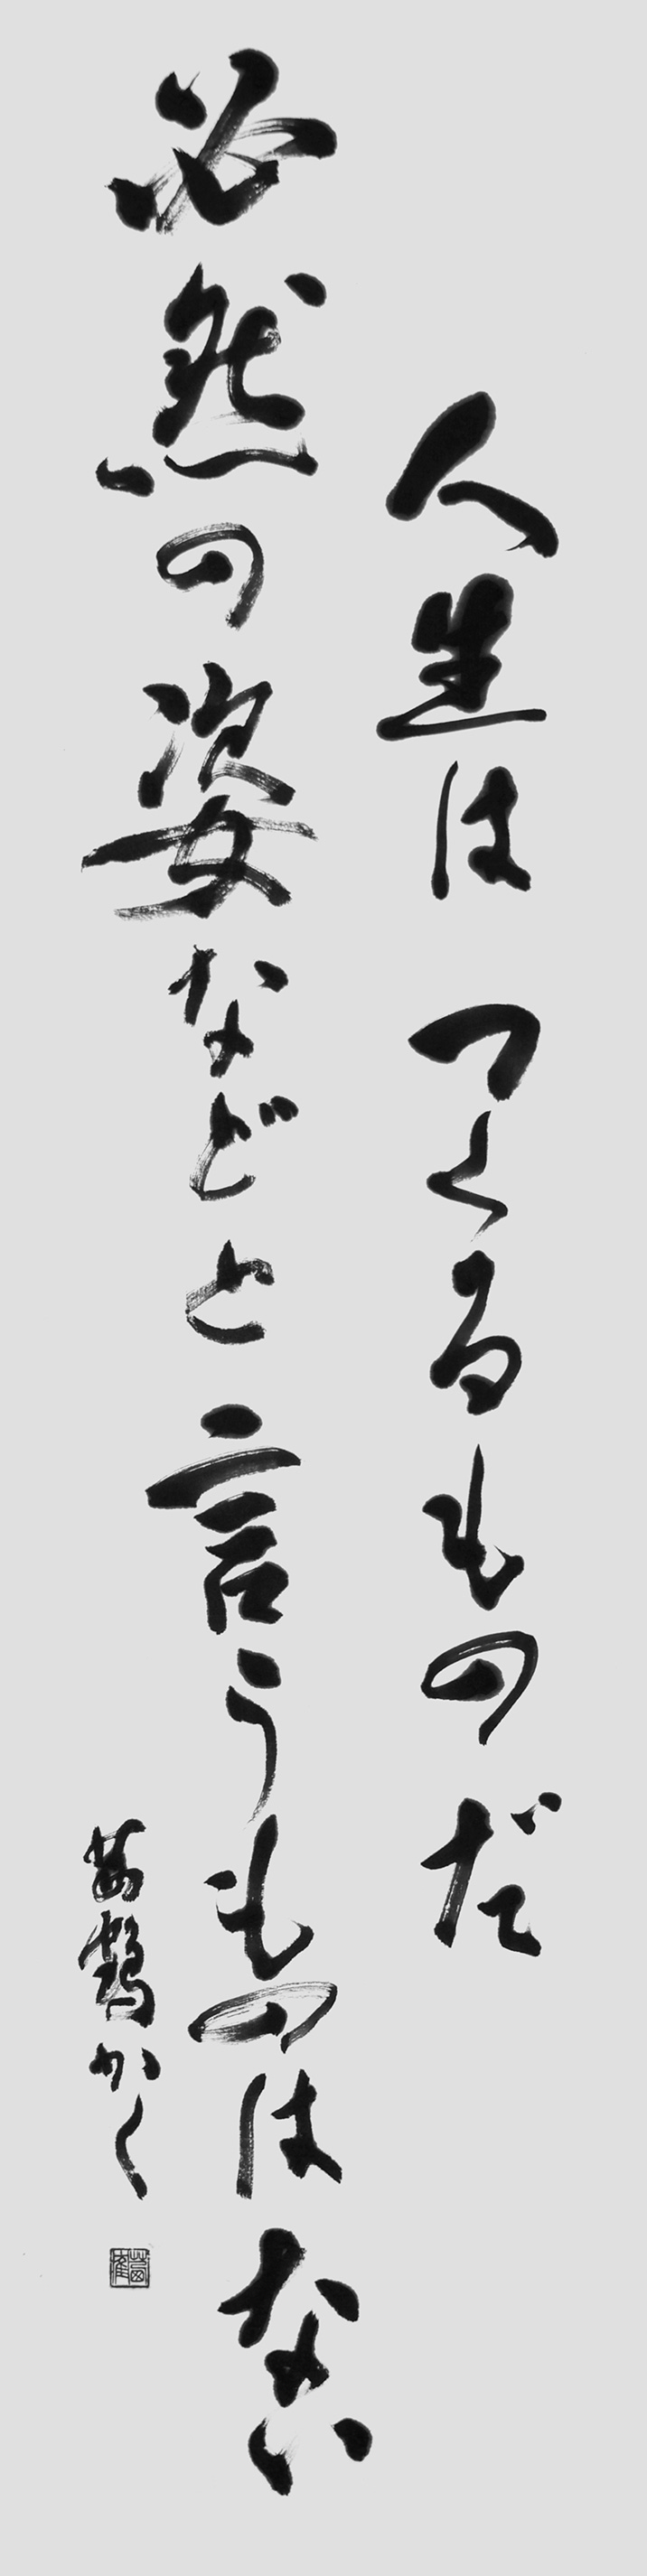 人生はつくるものだ
必然の姿などと言うものはない
鶴かく